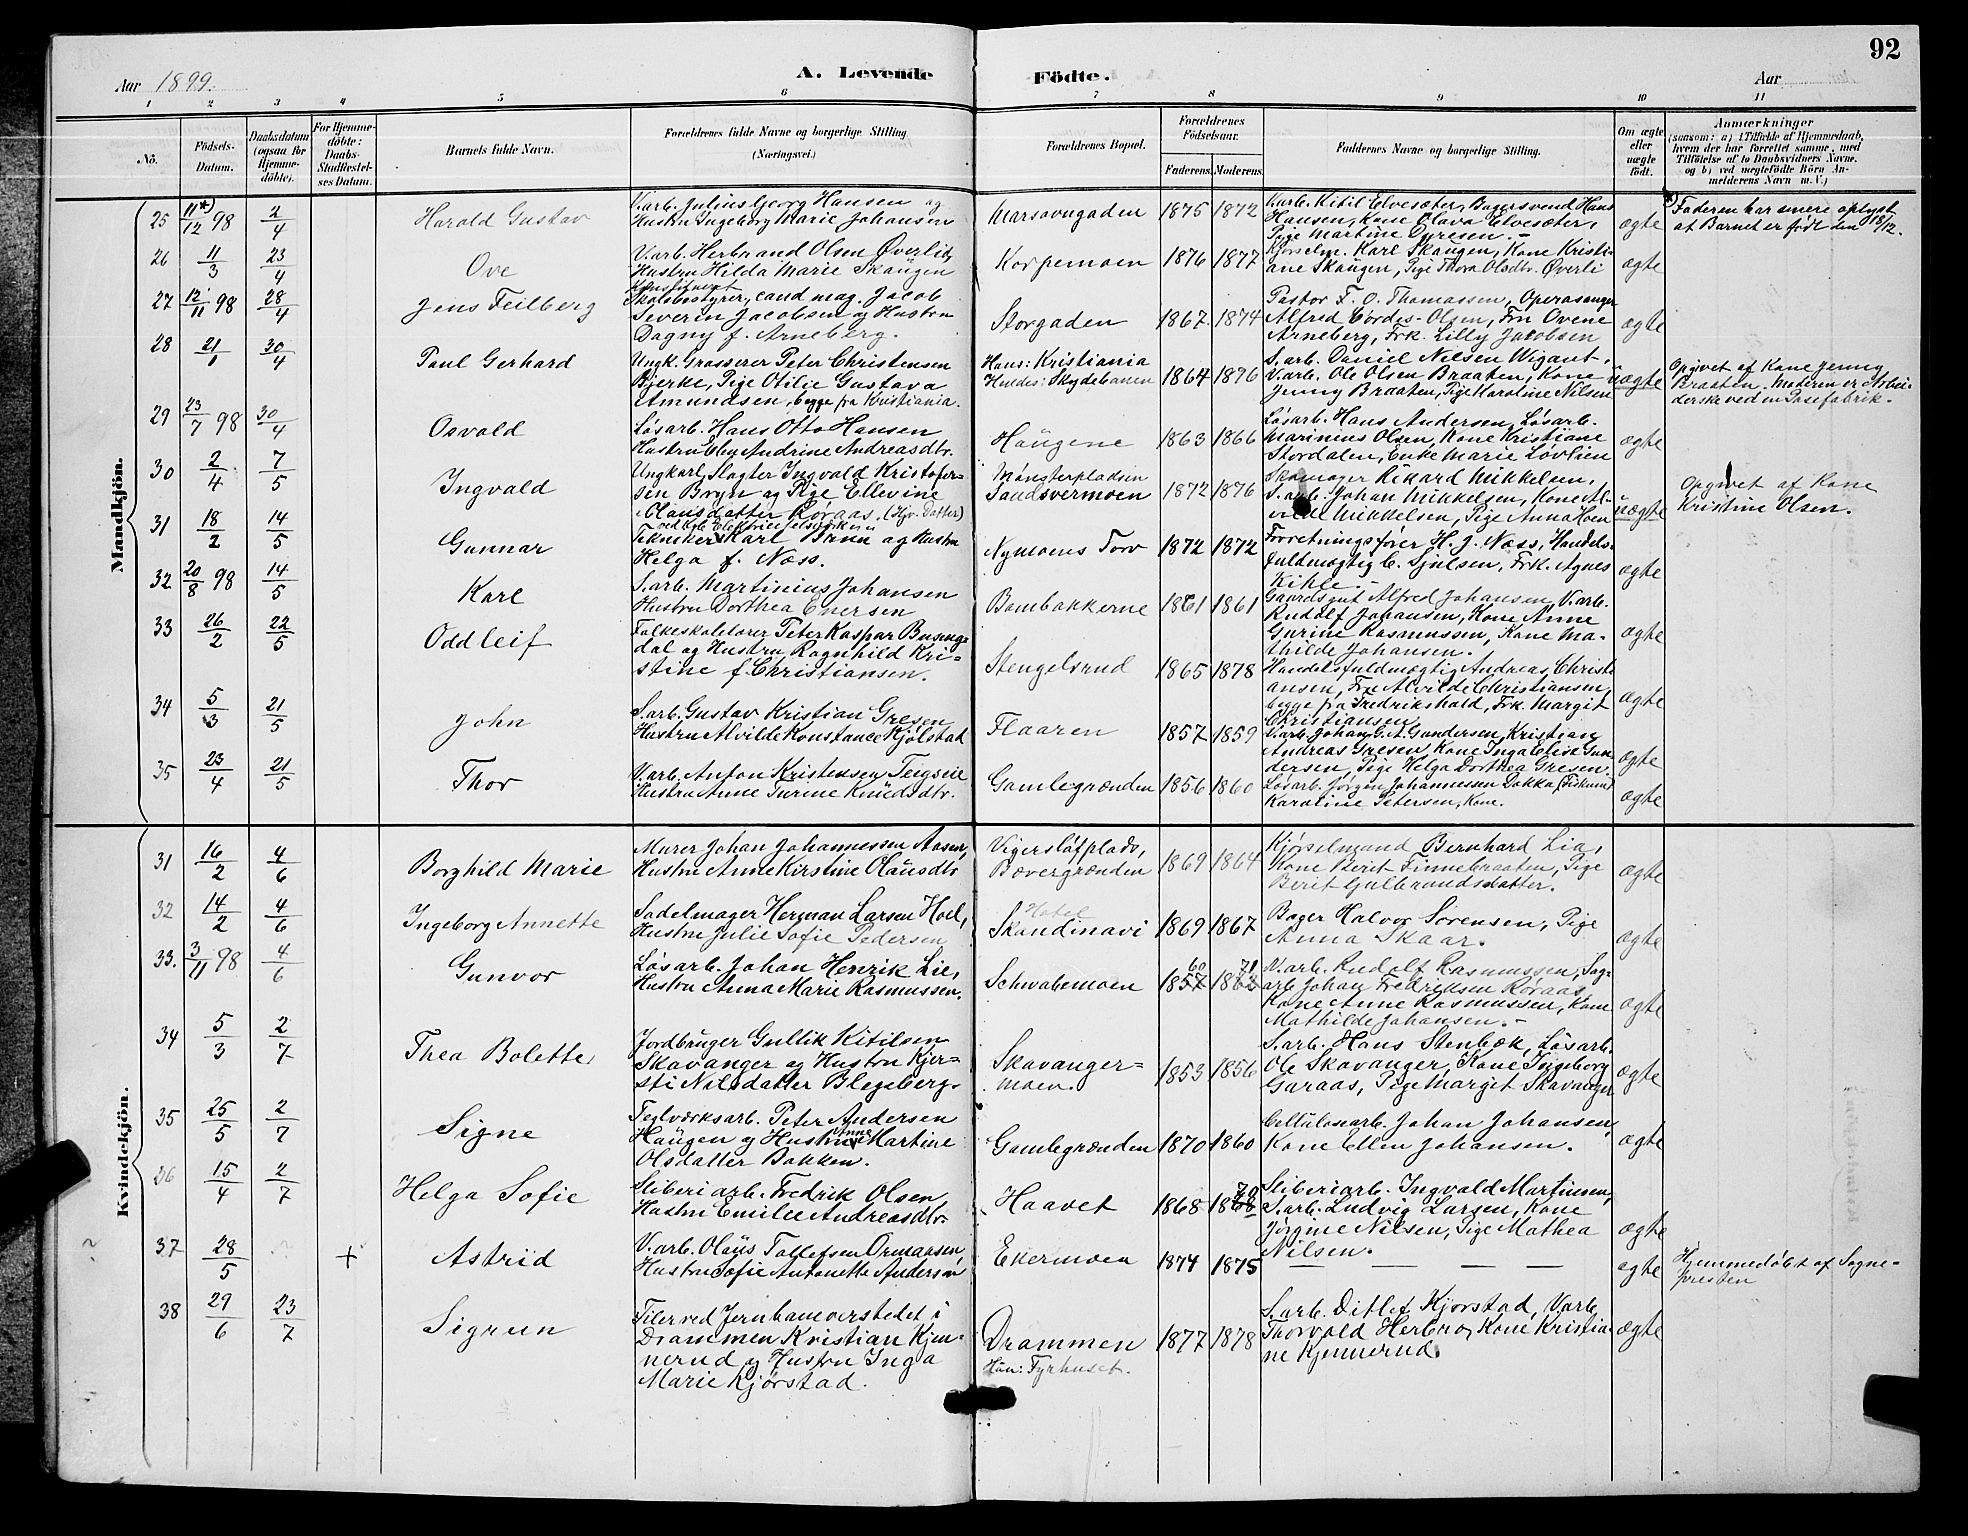 92
Aar 1899.
A. Levende Födte.
Aar
1 2 3 4 5 6 7 8 9 10 11
No.
Födsels-Datum.
Daabsdatum (ogsaa for Hjemme-döbte).
For Hjemme-döbte: Daabs-Stadfæstel-ses Datum.
Barnets fulde Navn.
Forældrenes fulde Navne og borgerlige Stilling (Næringsvei.)
Forældrenes Bopæl.
Forældrenes Födselsaar.
Faderens. Moderens.
Faddernes Navne og borgerlige Stilling.
Om ægte eller uægte födt.
Anmærkninger
(saasom: a) i Tilfælde af Hjemmedaab, hvem der har forrettet samme, med Tilföielse af to Daabsvidners Navne, og b) ved uægtefödte Börn An-melderens Navn m. V.)
Mandkjön.
25 11*)/12 98 2/4 Harald Gustav
V.arb. Julius Georg Hansen og
Hustru Ingeborg Marie Johansen
Marsovngaden 1875 1872
V.arb. Kitil Elvesæter, Bagersvend Hans
Hansen, Kone Olava Elvesæter,
Pige Martine Dyresen.-
ægte
*) Faderen har senere oplyst
at Barnet er født den 18/12.
26 11/3 23/4 Ove
V.arb. Herbrand Olsen Øverlib,
Hustru Hilda Marie Skaugen
Korpemoen 1876 1877
Kjørselm. Karl Skaugen, Kone Kristi-
ane Skaugen, Pige Thora Olsdtr. Øverli
ægte
27 12/11 98 28/4 Jens Feilberg
Konstitueret
Skolebestyrer, cand mag. Jacob
Severin Jacobsen og Hustru
Dagny f. Arneberg.
Storgaden 1867 1874
Pastor F. O. Thomassen, Operasanger
Alfred Cordes-Olsen, Fru Ovene
Arneberg, Frk. Lilly Jacobsen
ægte
28 21/1 30/4 Paul Gerhard
Ungk. Grosserer Peter Christensen
Bjerke, Pige Otilie Gustava
Amundsen, begge fra Kristiania.
Hans: Kristiania
Hendes: Skydebanen 1864 1876
S.arb. Daniel Nilsen Wigant,
V.arb. Ole Olsen Braaten, Kone
Jenny Braaten, Pige Karoline Nilsen
uægte
Opgivet af Kone Jenny
Braaten. Moderen er Arbei-
derske ved en Posefabrik.
29 23/7 98 30/4 Osvald
Løsarb. Hans Otto Hansen
Hustru Elly Andrine Andreasdtr.
Haugene 1863 1866
Løsarb. Hans Andersen, Løsarb.
Marinius Olsen, Kone Kristiane
Stordalen, Enke Marie Løvlien
ægte
30 2/4 7/5 Ingvald
Ungkarl, Slagter Ingvald Kristofer-
sen Bryn og Pige Ellevine
Olausdatter Roraas, (Hjv. Datter)
Mønsterpladsen
Sandsværmoen 1872 1876
Skomager Rikard Mikkelsen,
S.arb. Johan Mikkelsen, Kone Al-
vilde Mikkelsen, Pige Anna Hoen
uægte
Opgivet af Kone
Kristine Olsen.
31 18/2 14/5 Gunnar
Tekniker Karl Bruu og Hustru
Helga f. Næss.
Nymoens Torv 1872 1872
Forretningsfører H. J. Næss, Handels-
fuldmægtig C. Sjulsen, Frk. Agnes
Kihle.-
ægte
32 20/8 98 14/5 Karl
S.arb. Martinius Johansen
Hustru Dorthea Enersen
Bambakkerne 1861 1861
Gaardsgut Alfred Johansen, V.arb.
Rudolf Johansen, Kone Anne
Gurine Rasmussen, Kone Ma-
thilde Johansen.
ægte
33 26/2 22/5 Odd Leif
Folkeskolelærer Peter Kaspar Busenge-
dal og Hustru Ragnhild Kri-
stine f. Christiansen.
Stengelsrud 1865 1878
Handelsfuldmægtig Andreas Christi-
ansen, Fru Alvilde Christiansen,
begge fra Fredrikshald, Frk. Margit
Christiansen
ægte
34 5/3 21/5 John
S.arb. Gustav Kristian Gresen
Hustru Alvilde Konstance Kjølstad
Flaaren 1857 1859
V.arb. Johan G. A. Gundersen, Kristian
Andreas Gresen, Kone Inga Elise Gun-
dersen, Pige Helga Dorthea Gresen.
ægte
35 23/4 21/5 Thor
V.arb. Anton Kristensen Teigseie
Hustru Anne Turine Knudsdtr.
Gamlegrænden 1856 1860
Løsarb. Jørgen Johannessen Dokka, (Fiskum)
Karoline Petersen, Kone.
ægte
Kvindekjön.
31 16/2 4/6 Borghild Marie
Murer Johan Johannessen Aasen,
Hustru Anne Kirstine Olausdtr
Vigersløfplads,
Bævergrænden 1869 1864
Kjørselmand Bernhard Lia,
Kone Berit Finnebraaten, Pige
Berit Gulbrandsdatter.
ægte
32 14/2 4/6 Ingeborg Annette
Sadelmager Herman Larsen Hoel,
Hustru Julie Sofie Pedersen
Hotel
Skandinavi 1869 1867
Bager Halvor Sørensen, Pige
Anna Skaar.
ægte
33. 3/11 98 4/6 Gunvor
Løsarb. Johan Henrik Lie,
Hustru Anna Marie Rasmussen.
Schwabemoen 1857 60 1863 71
V.arb. Rudolf Rasmussen, Sag-
arb Johan Fredriksen Roraas,
Kone Anne Rasmussen, Kone
Mathilde Johansen.-
ægte
34 5/3 2/7 Thea Bolette
Jordbruger Gullik Kitilsen
Skavanger og Hustru Kjer-
sti Nilsdatter Blegeberg.
Skavanger-
moen. 1853 1856
S.arb. Hans Stenbæk, Løsarb.
Ole Skavanger, Kone Ingeborg
Garaas, Pige Margit Skavanger
ægte
35 25/5 2/7 Signe
Teglværksarb. Peter Andersen
Haugen og Hustru Anne Martine
Olsdatter Bakken.
Gamlegrænden 1870 1860
Cellulosearb. Johan Johansen,
Kone Ellen Johansen.
ægte
36 15/4 2/7 Helga Sofie
Sliberiarb. Fredrik Olsen,
Hustru Emilie Andreasdtr.
Haavet 1868 1868 70
Sliberiarb. Ingvald Martinsen,
S.arb. Ludvig Larsen, Kone
Jørgine Nilsen, Pige Mathea
Nilsen.
ægte
37 28/5 + Astrid
V.arb. Olaüs Tollefsen Ormaasen,
Hustru Sofie Antonette Andersen
Ekermoen 1874 1875
— — — — —
ægte
Hjemmedøbt af Sogne-
presten
38 29/6 23/7 Sigrun
Filer ved Jernbaneverstedet i
Drammen Kristian Kjen-
nerud og Hustru Inga
Marie Kjørstad.
Drammen
Hun: Fyrhuset. 1877 1878
S.arb. Ditlef Kjørstad, V.arb.
Thorvald Herbro, Kone Kristia-
ne Kjennerud.
ægte